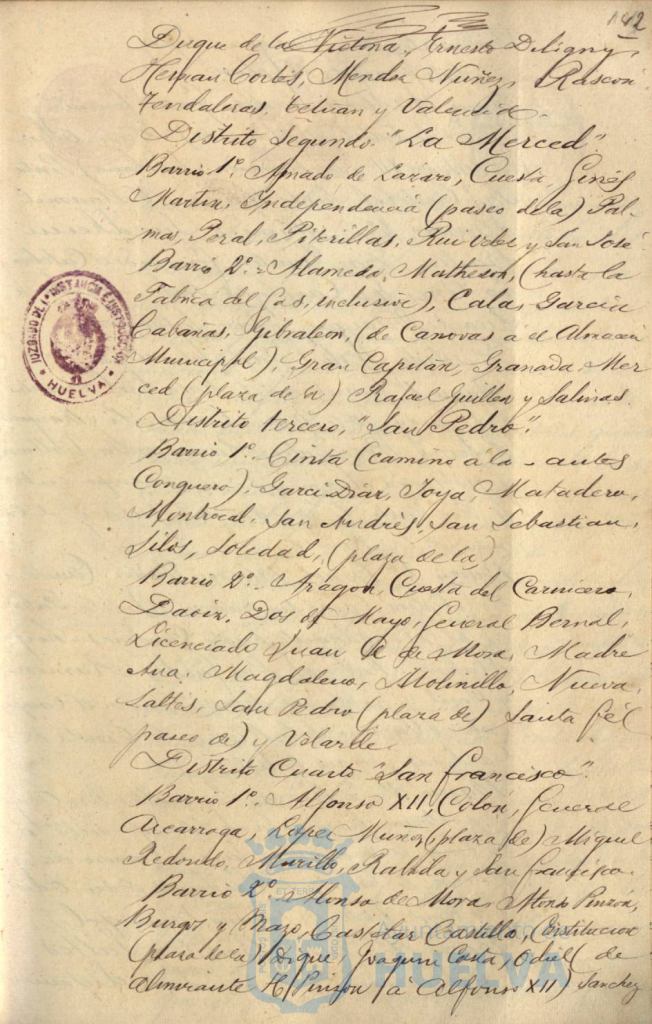 142
Duque de la Victoria, Ernesto Deligny,
Hernan Cortés, Mendez Nuñez, Rascon
Tendaleras, Tetuan y Valencia.
Distrito Segundo. "La Merced".
Barrio 1º. Amado de Lázaro, Cuesta, Ginés
Martin, Independencia (paseo de la) Pal-
mas, Peral, Piterillas, Rui Velez y San José
Barrio 2º. Alameda, Matheson, (hasta la
Fabrica del Gas, inclusive), Cala, Garcia
Cabañas, Gibraleon, (de Canovas á el Almacen
Municipal), Gran Capitán, Granada, Mer-
ced (plaza de la) Rafael Guillen y Salinas.
Distrito tercero, "San Pedro".
Barrio 1º. Cinta (camino á la - antes
Conquero), Garci Diaz, Joya, Matadero,
Montrocal, San Andrés, San Sebastian,
Silos, Soledad, (plaza de la)
Barrio 2º. Aragon, Cuesta del Carnicero,
Daoiz, Dos de Mayo, General Bernal,
Licenciado Juan de Mora, Madre
Ana, Magdalena, Molinillo, Nueva,
Saltés, San Pedro (plaza de) Santa Fé (
paseo de) y Velarde.
Distrito Cuarto "San Francisco".
Barrio 1º. Alfonso XII, Colón, General
Azcarraga, Lopez Muñoz (plaza de) Miguel
Redondo, Murillo, Rabida y San Francisco.
Barrio 2º. Alonso de Mora, Alonso Pinzón,
Burgos y Mazo, Castelar, Castillo, Constitucion
(plaza de la) Dique, Joaquin Costa, Odiel (de
almirante H. Pinzon á Alfonso XII) Sanchez
JUZGADO DE 1ª INSTANCIA É INSTRUCCION
HUELVA
HUELVA